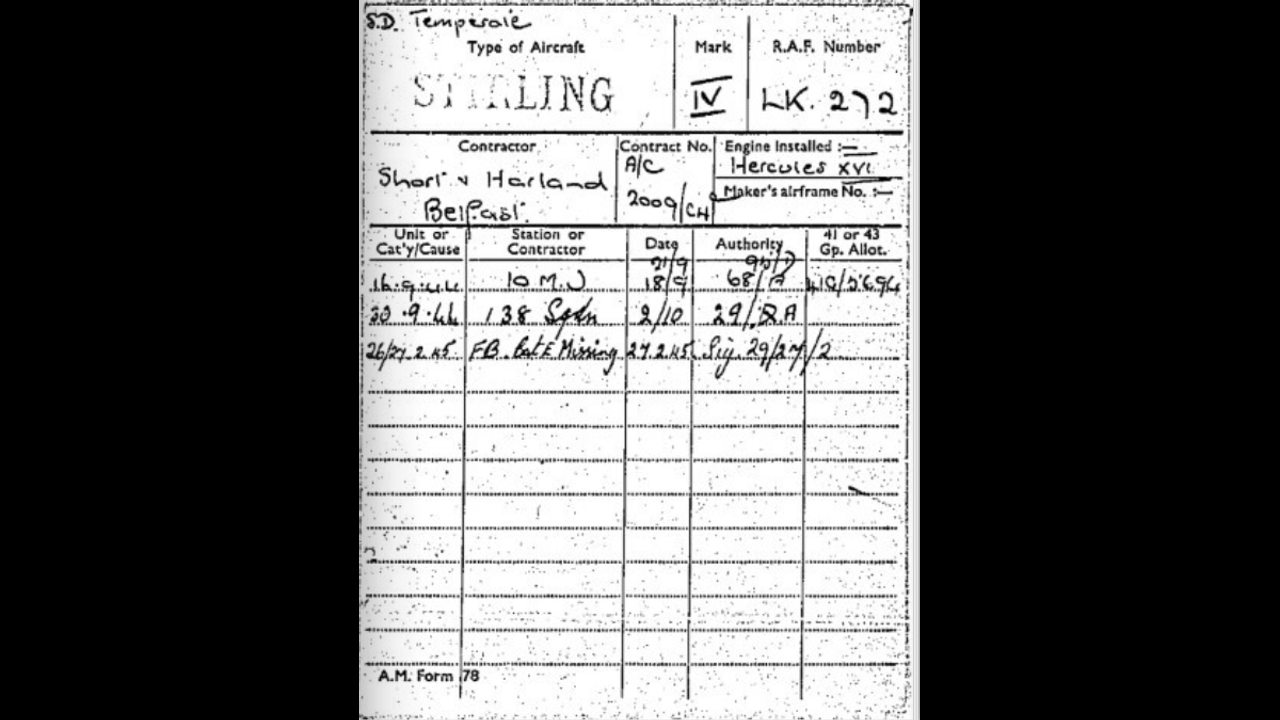 S.D. Temperate
Type of Aircraft Mark R.A.F. Number
STIRLING IV LK. 272
Contractor Contract No. Engine Installed :—
Short & Harland A/C Hercules XVI
Belfast. 2009/CH Maker's airframe No. :—
Unit or Station or Date Authority 41 or 43
Cat'y/Cause Contractor Gp. Allot.
21/9
16.9.44 10 M.U 18/9 68/A
30.9.44 138 Sqdn 2/10 29/
26/27.2.45 FB. Cat E Missing 27.2.45 Sig. 29/27/2
A.M. Form 78